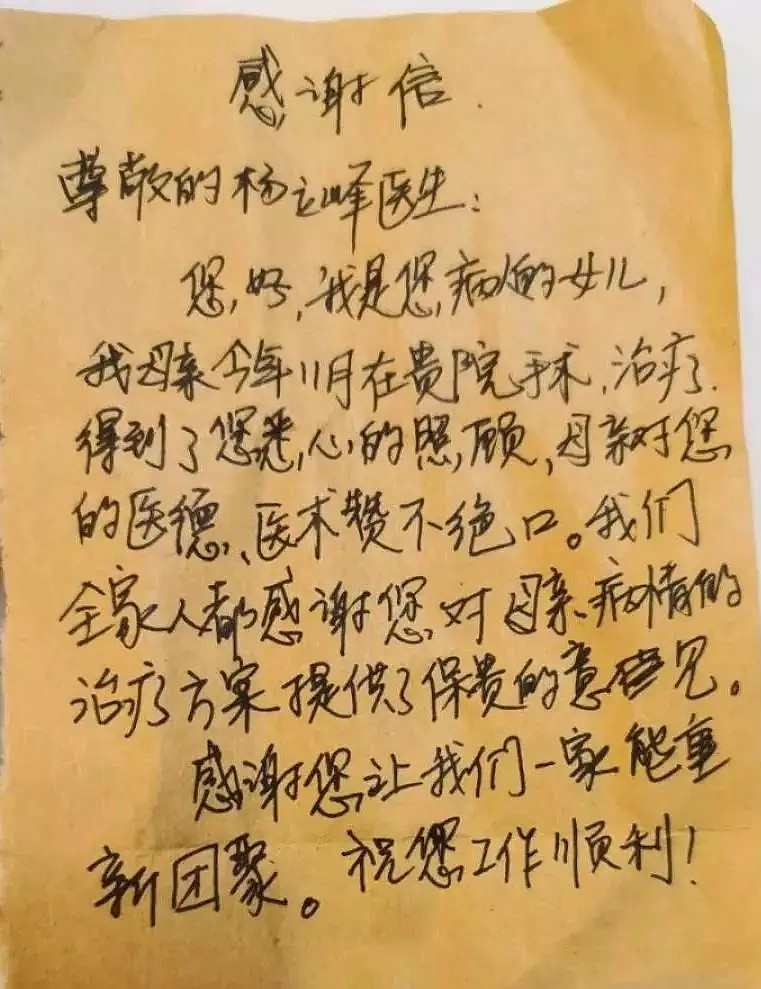 感谢信.
尊敬的杨立峰医生:
您好,我是您病人的女儿,
我母亲今年11月在贵院手术,治疗.
得到了您悉心的照顾,母亲对您
的医德、医术赞不绝口。我们
全家人都感谢您对母亲病情的
治疗方案提供了保贵的意见。
感谢您让我们一家能重
新团聚。祝您工作顺利!